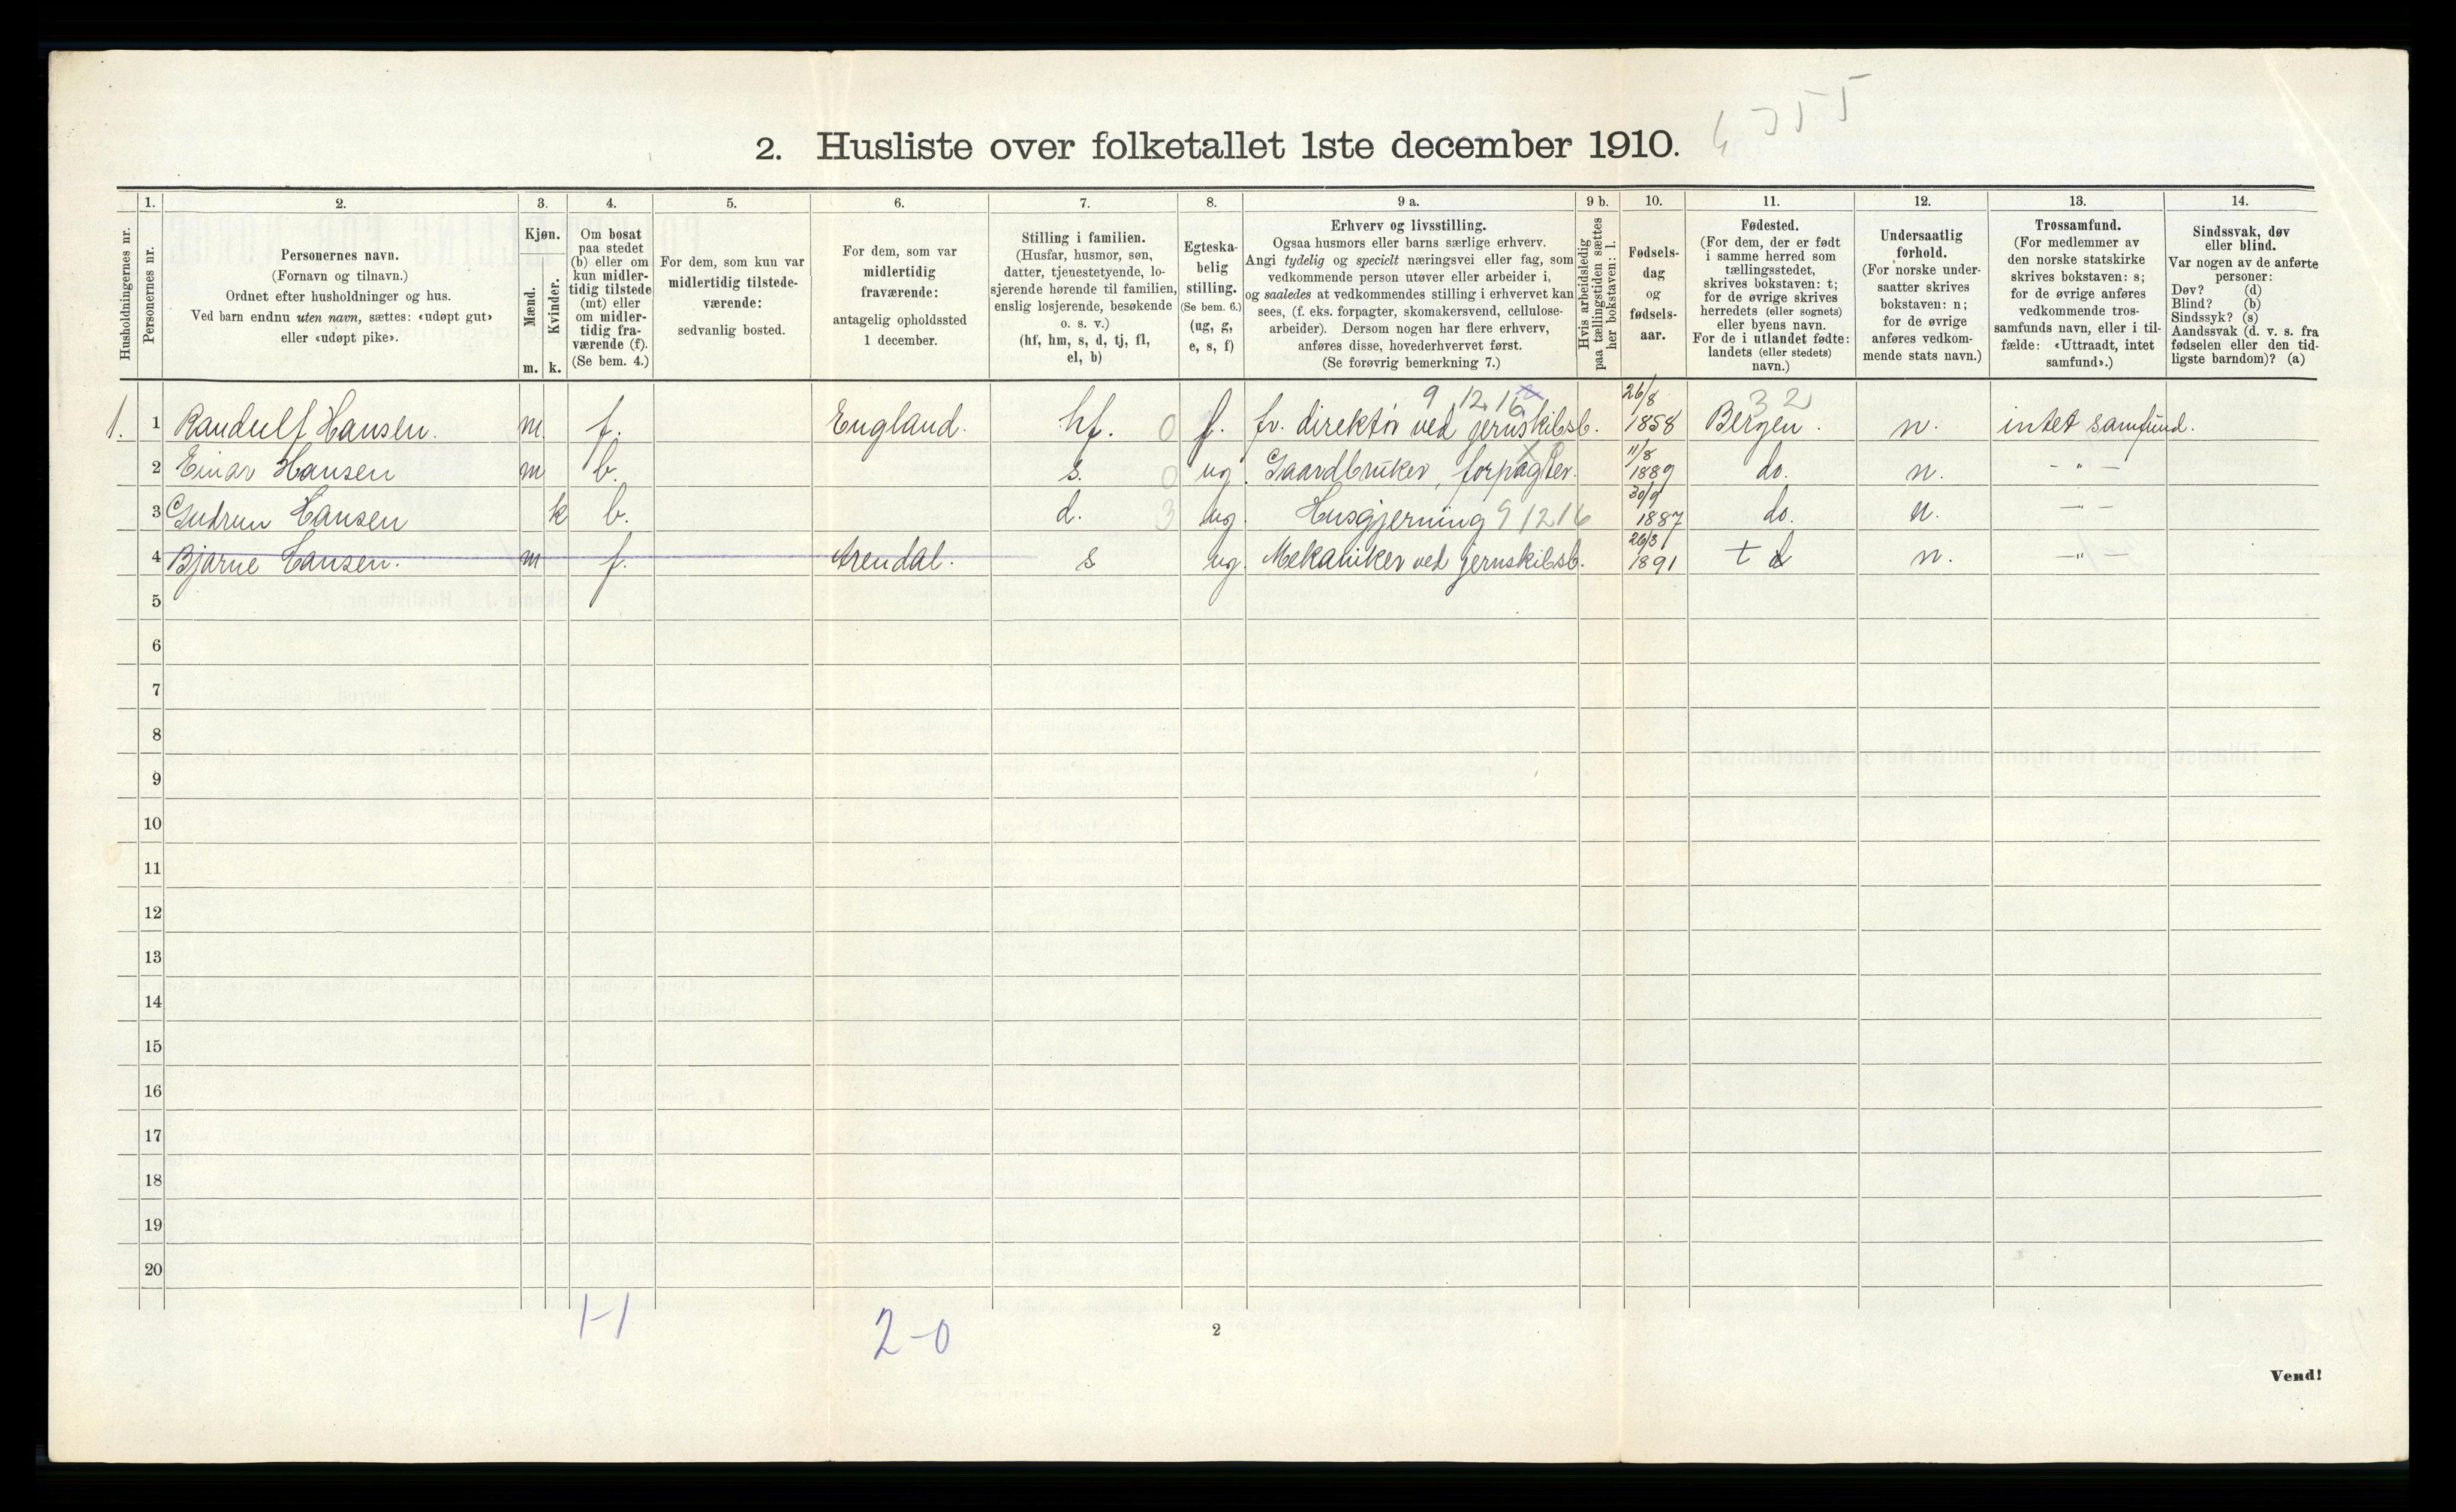 4355
2. Husliste over folketallet 1ste december 1910.
Husholdningernes nr.
1. Personernes nr.
2. Personernes navn.
(Fornavn og tilnavn.)
Ordnet efter husholdninger og hus.
Ved barn endnu uten navn, sættes: «udøpt gut»
eller «udøpt pike».
3. Kjøn.
Mænd. m.
Kvinder. k.
4. Om bosat
paa stedet
(b) eller om
kun midler-
tidig tilstede
(mt) eller
om midler-
tidig fra-
værende (f).
(Se bem. 4.)
5. For dem, som kun var
midlertidig tilstede-
værende:
sedvanlig bosted.
6. For dem, som var
midlertidig
fraværende:
antagelig opholdssted
1 december.
7. Stilling i familien.
(Husfar, husmor, søn,
datter, tjenestetyende, lo-
sjerende hørende til familien,
enslig losjerende, besøkende
o. s. v.)
(hf, hm, s, d, tj, fl,
el, b)
8. Egteska-
belig
stilling.
(Se bem. 6.)
(ug, g,
e, s, f)
9 a. Erhverv og livsstilling.
Ogsaa husmors eller barns særlige erhverv.
Angi tydelig og specielt næringsvei eller fag, som
vedkommende person utøver eller arbeider i,
og saaledes at vedkommendes stilling i erhvervet kan
sees, (f. eks. forpagter, skomakersvend, cellulose-
arbeider). Dersom nogen har flere erhverv,
anføres disse, hovederhvervet først.
(Se forøvrig bemerkning 7.)
9 b. Hvis arbeidsledig
paa tællingstiden sættes
her bokstaven: l.
10. Fødsels-
dag
og
fødsels-
aar.
11. Fødested.
(For dem, der er født
i samme herred som
tællingsstedet,
skrives bokstaven: t;
for de øvrige skrives
herredets (eller sognets)
eller byens navn.
For de i utlandet fødte:
landets (eller stedets)
navn.)
12. Undersaatlig
forhold.
(For norske under-
saatter skrives
bokstaven: n;
for de øvrige
anføres vedkom-
mende stats navn.)
13. Trossamfund.
(For medlemmer av
den norske statskirke
skrives bokstaven: s;
for de øvrige anføres
vedkommende tros-
samfunds navn, eller i til-
fælde: «Uttraadt, intet
samfund».)
14. Sindssvak, døv
eller blind.
Var nogen av de anførte
personer:
Døv? (d)
Blind? (b)
Sindssyk? (s)
Aandssvak (d. v. s. fra
fødselen eller den tid-
ligste barndom)? (a)
9 12 16 26/8 32
1. 1 Randulf Hansen. m f. England. hf. 0 f. fv. direktør ved jernskibsb. 1858 Bergen. n. intet samfund.
2 Einar Hansen m b. s. 0 ug. Gaardbruker, forpagter. 11/8 1889 do. n. - " -
3 Gudrun Hansen k b. d. 3 ug. Husgjerning 9 12 16 30/9 1887 do. n. - " -
4 Bjarne Hansen. m f. Arendal. s ug. Mekaniker ved jernskibsb. 26/3 1891 t n. - " -
5
6
7
8
9
10
11
12
13
14
15
16
17
18
19
20
1-1
2-0
2
Vend!